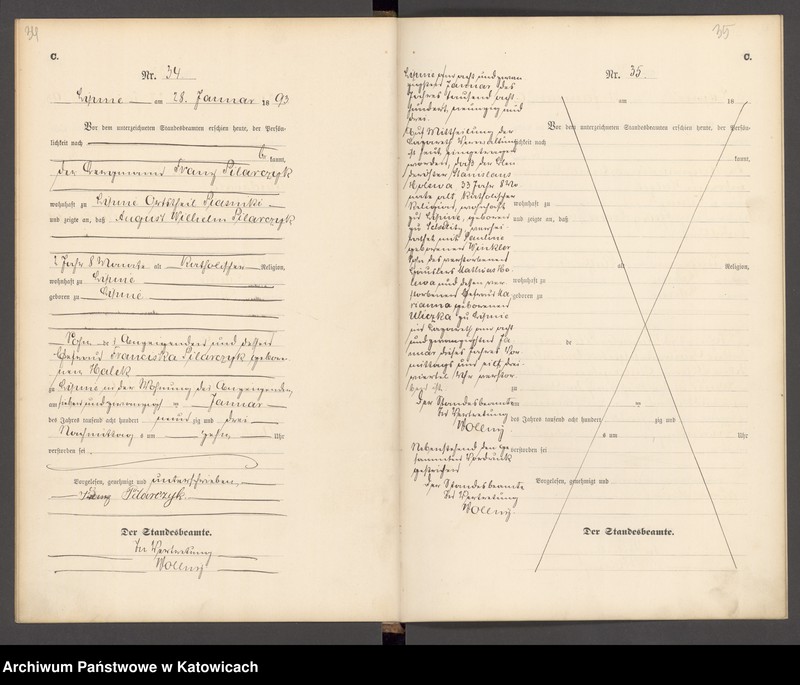 34
C.
Nr. 34
Lipine am 28. Januar 1893
Vor dem unterzeichneten Standesbeamten erschien heute, der Persön-
lichkeit nach
kannt,
der Bergmann Franz Pilarczyk
wohnhaft zu Lipine Ortstheil Piasniki
und zeigte an, daß August Wilhelm Pilarczyk
2 Jahr 8 Monate alt katholischer Religion,
wohnhaft zu Lipine
geboren zu Lipine
Sohn des Anzeigenden und dessen
Ehefrau Franciska Pilarczyk gebore-
nen Halek
zu Lipine in der Wohnung des Anzeigenden
am sieben und zwanzigsten Januar
des Jahres tausend acht hundert neunzig und drei
Nachmittag s um zehn Uhr
verstorben sei.
Vorgelesen, genehmigt und unterschrieben.
Franz Pilarczyk
Der Standesbeamte.
In Vertretung
Wollny
35
C.
Nr. 35
Lipine am acht und zwan-
zigsten Januar des
Jahres tausend acht
hundert neunzig und
drei.
Auf Mittheilung der
Lazareth Verwaltung
ist heut eingetragen
worden, daß der
Stanislaus
Kolewa 33 Jahr 8 Mo-
nate alt, katholischer
Religion, wohnhaft
zu Lipine, geboren
zu verhei-
rathet mit Pauline
geborenen Winkler
Sohn des verstorbenen
Häuslers Mathias Ko-
lewa und dessen ver-
storbenen Ehefrau Ma-
rianna geborenen
Uliczka zu Lipine
im Lazareth am acht
und zwanzigsten Ja-
nuar dieses Jahres Vor-
mittags um elf drei-
viertel Uhr verstor-
ben ist.
Der Standesbeamte
In Vertretung
Wollny
Nebenstehend den ge-
sammten Vordruck
gestrichen
Der Standesbeamte
In Vertretung
Wollny.
am 18
Vor dem unterzeichneten Standesbeamten erschien heute, der Persön-
lichkeit nach
kannt,
wohnhaft zu
und zeigte an, daß
alt Religion,
wohnhaft zu
geboren zu
de
zu
am
des Jahres tausend acht hundert zig und
s um Uhr
verstorben sei
Vorgelesen, genehmigt und
Der Standesbeamte.
Archiwum Państwowe w Katowicach